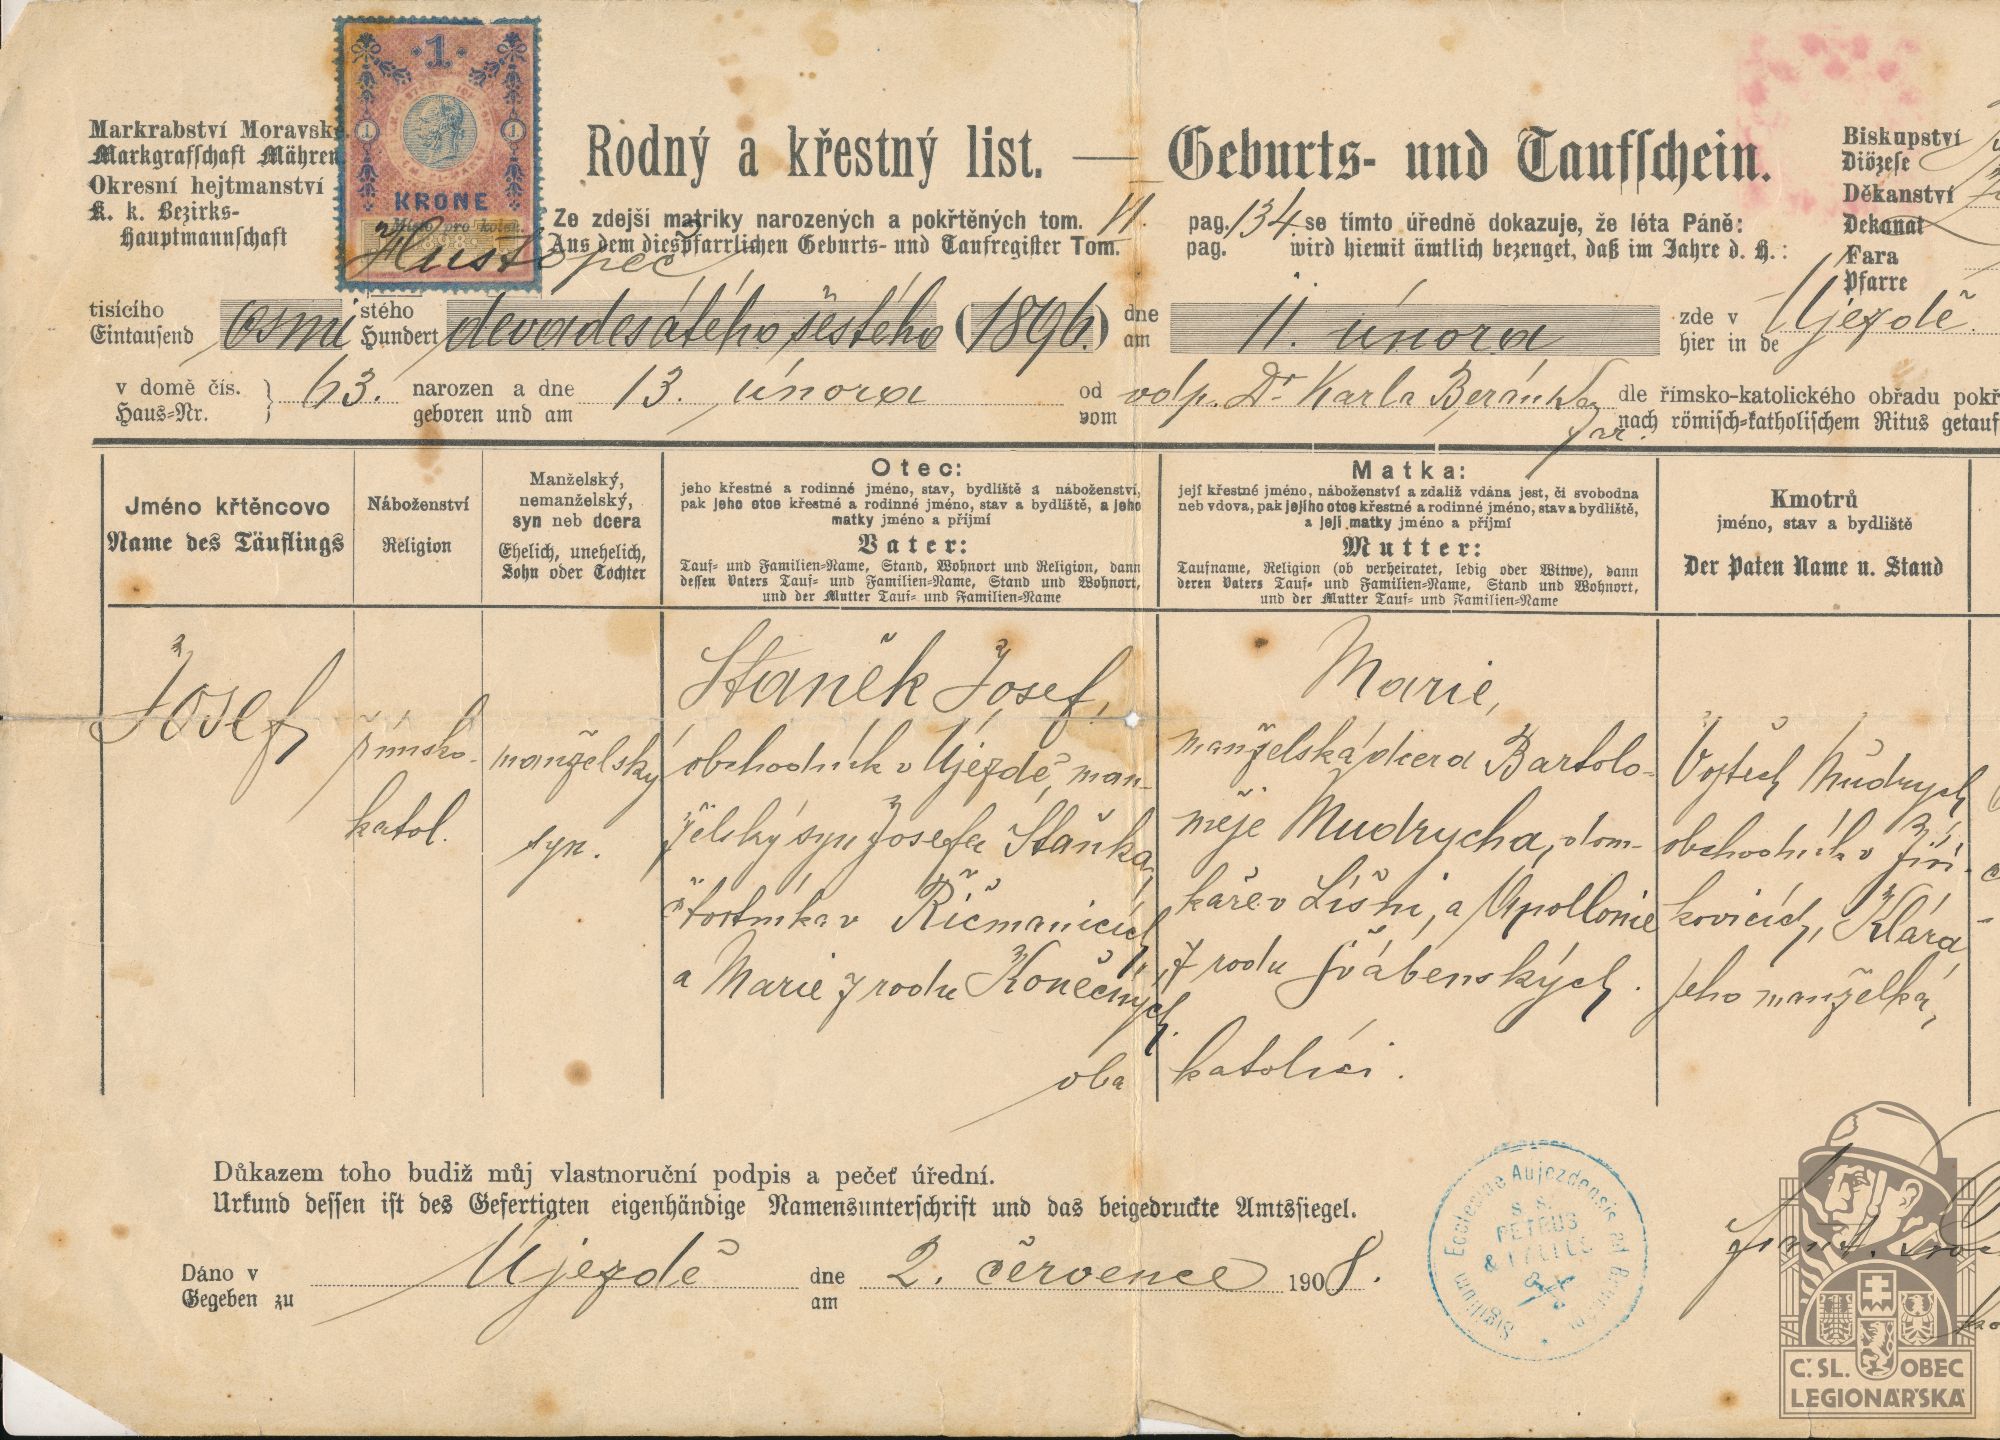 Markrabství Moravské.
Markgrafschaft Mähren
Okresní hejtmanství
K. k. Bezirks-
Hauptmannschaft
Hustopeč
1
1 1
KRONE
Místo pro kolek.
1898
Rodný a křestný list. — Geburts- und Taufschein.
Ze zdejší matriky narozených a pokřtěných tom. VI. pag. 134. se tímto úředně dokazuje, že léta Páně:
Aus dem diespfarrlichen Geburts- und Taufregister Tom. pag. wird hiemit ämtlich bezeuget, daß im Jahre d. H.:
Biskupství
Diözese
Děkanství
Dekanat
Fara
Pfarre
tisícího osmi stého devadesátého šestého (1896.) dne 11. února zde v Újezdě.
Eintausend Hundert am hier in de
v domě čís. 63. narozen a dne 13. února od vdp. Dr Karla Beránka dle římsko-katolického obřadu pokř
Haus-Nr. geboren und am vom far. nach römisch-katholischem Ritus getauf
Jméno křtěncovo
Name des Täuflings
Náboženství
Religion
Manželský,
nemanželský,
syn neb dcera
Ehelich, unehelich,
Sohn oder Tochter
Otec:
jeho křestné a rodinné jméno, stav, bydliště a náboženství,
pak jeho otce křestné a rodinné jméno, stav a bydliště, a jeho
matky jméno a příjmí
Vater:
Tauf- und Familien-Name, Stand, Wohnort und Religion, dann
dessen Vaters Tauf- und Familien-Name, Stand und Wohnort,
und der Mutter Tauf- und Familien-Name
Matka:
její křestné jméno, náboženství a zdaliž vdána jest, či svobodna
neb vdova, pak jejího otce křestné a rodinné jméno, stav a bydliště,
a její matky jméno a příjmí
Mutter:
Taufname, Religion (ob verheiratet, ledig oder Witwe), dann
deren Vaters Tauf- und Familien-Name, Stand und Wohnort,
und der Mutter Tauf- und Familien-Name
Kmotrů
jméno, stav a bydliště
Der Paten Name u. Stand
Josef
římsko-
katol.
manželský
syn.
Staněk Josef,
obchodník v Újezdě, man-
želský syn Josefa Staňka,
čtvrtníka v Řičmanicích
a Marie z rodu Konečných.
oba
Marie,
manželská dcera Bartolo-
měje Mudrycha, dom-
káře v Líšni, a Apollonie
z rodu Švábenských.
katolíci.
Vojtěch Mudrych
obchodník v Jiří-
kovicích, Klára,
jeho manželka,
Důkazem toho budiž můj vlastnoruční podpis a pečeť úřední.
Urkund dessen ist des Gefertigten eigenhändige Namensunterschrift und das beigedruckte Amtssiegel.
Dáno v Újezdě dne 2. července 1908.
Gegeben zu am
Sigillum Ecclesiae Aujezdensis ad Brunam
S. S.
PETRUS
& PAULUS
Č.SL. OBEC
LEGIONÁŘSKÁ